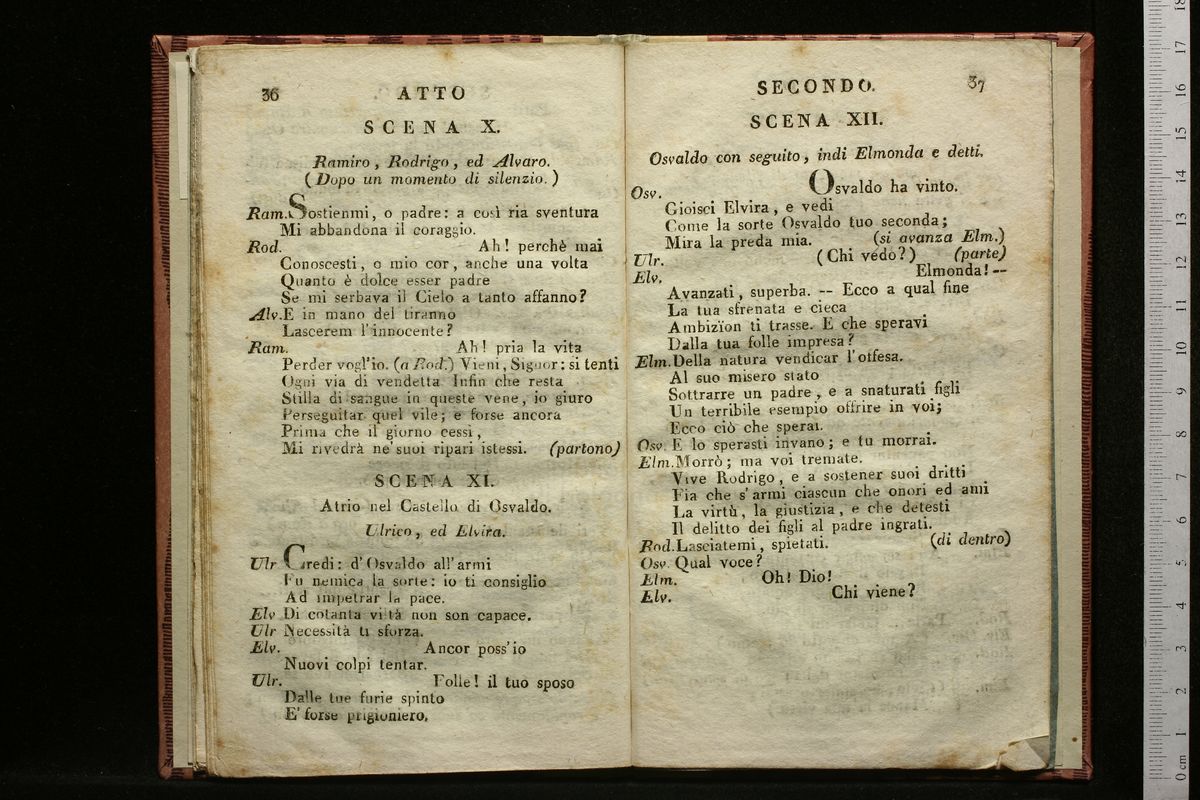 36 ATTO
SCENA X.
Ramiro, Rodrigo, ed Alvaro.
(Dopo un momento di silenzio.)
Ram. Sostienmi, o padre: a così ria sventura
Mi abbandona il coraggio.
Rod. Ah! perchè mai
Conoscesti, o mio cor, anche una volta
Quanto è dolce esser padre
Se mi serbava il Cielo a tanto affanno?
Alv. E in mano del tiranno
Lascerem l'innocente?
Ram. Ah! pria la vita
Perder vogl'io. (a Rod.) Vieni, Signor: si tenti
Ogni via di vendetta Infin che resta
Stilla di sangue in queste vene, io giuro
Perseguitar quel vile; e forse ancora
Prima che il giorno cessi,
Mi rivedrà ne' suoi ripari istessi. (partono)
SCENA XI.
Atrio nel Castello di Osvaldo.
Ulrico, ed Elvira.
Ulr Credi: d'Osvaldo all'armi
Fu nemica la sorte: io ti consiglio
Ad impetrar la pace.
Elv Di cotanta viltà non son capace.
Ulr Necessità ti sforza.
Elv. Ancor poss'io
Nuovi colpi tentar.
Ulr. Folle! il tuo sposo
Dalle tue furie spinto
E' forse prigioniero.
SECONDO. 37
SCENA XII.
Osvaldo con seguito, indi Elmonda e detti.
Osv. Osvaldo ha vinto.
Gioisci Elvira, e vedi
Come la sorte Osvaldo tuo seconda;
Mira la preda mia. (si avanza Elm.)
Ulr. (Chi vedo?) (parte)
Elv. Elmonda! --
Avanzati, superba. -- Ecco a qual fine
La tua sfrenata e cieca
Ambizïon ti trasse. E che speravi
Dalla tua folle impresa?
Elm. Della natura vendicar l'offesa.
Al suo misero stato
Sottrarre un padre, e a snaturati figli
Un terribile esempio offrire in voi;
Ecco ciò che sperai.
Osv. E lo sperasti invano; e tu morrai.
Elm. Morrò; ma voi tremate.
Vive Rodrigo, e a sostener suoi dritti
Fia che s'armi ciascun che onori ed ami
La virtù, la giustizia, e che detesti
Il delitto dei figli al padre ingrati.
Rod. Lasciatemi, spietati. (di dentro)
Osv. Qual voce?
Elm. Oh! Dio!
Elv. Chi viene?
0 cm 1 2 3 4 5 6 7 8 9 10 11 12 13 14 15 16 17 18